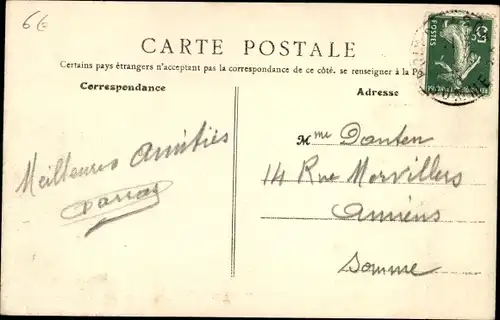 6€
CARTE POSTALE
Certains pays étrangers n'acceptant pas la correspondance de ce côté. se renseigner à la Po
Correspondance
Adresse
POSTES
Meilleures Amitiés
Mme Danten
14 Rue Morvillers
Amiens
Somme